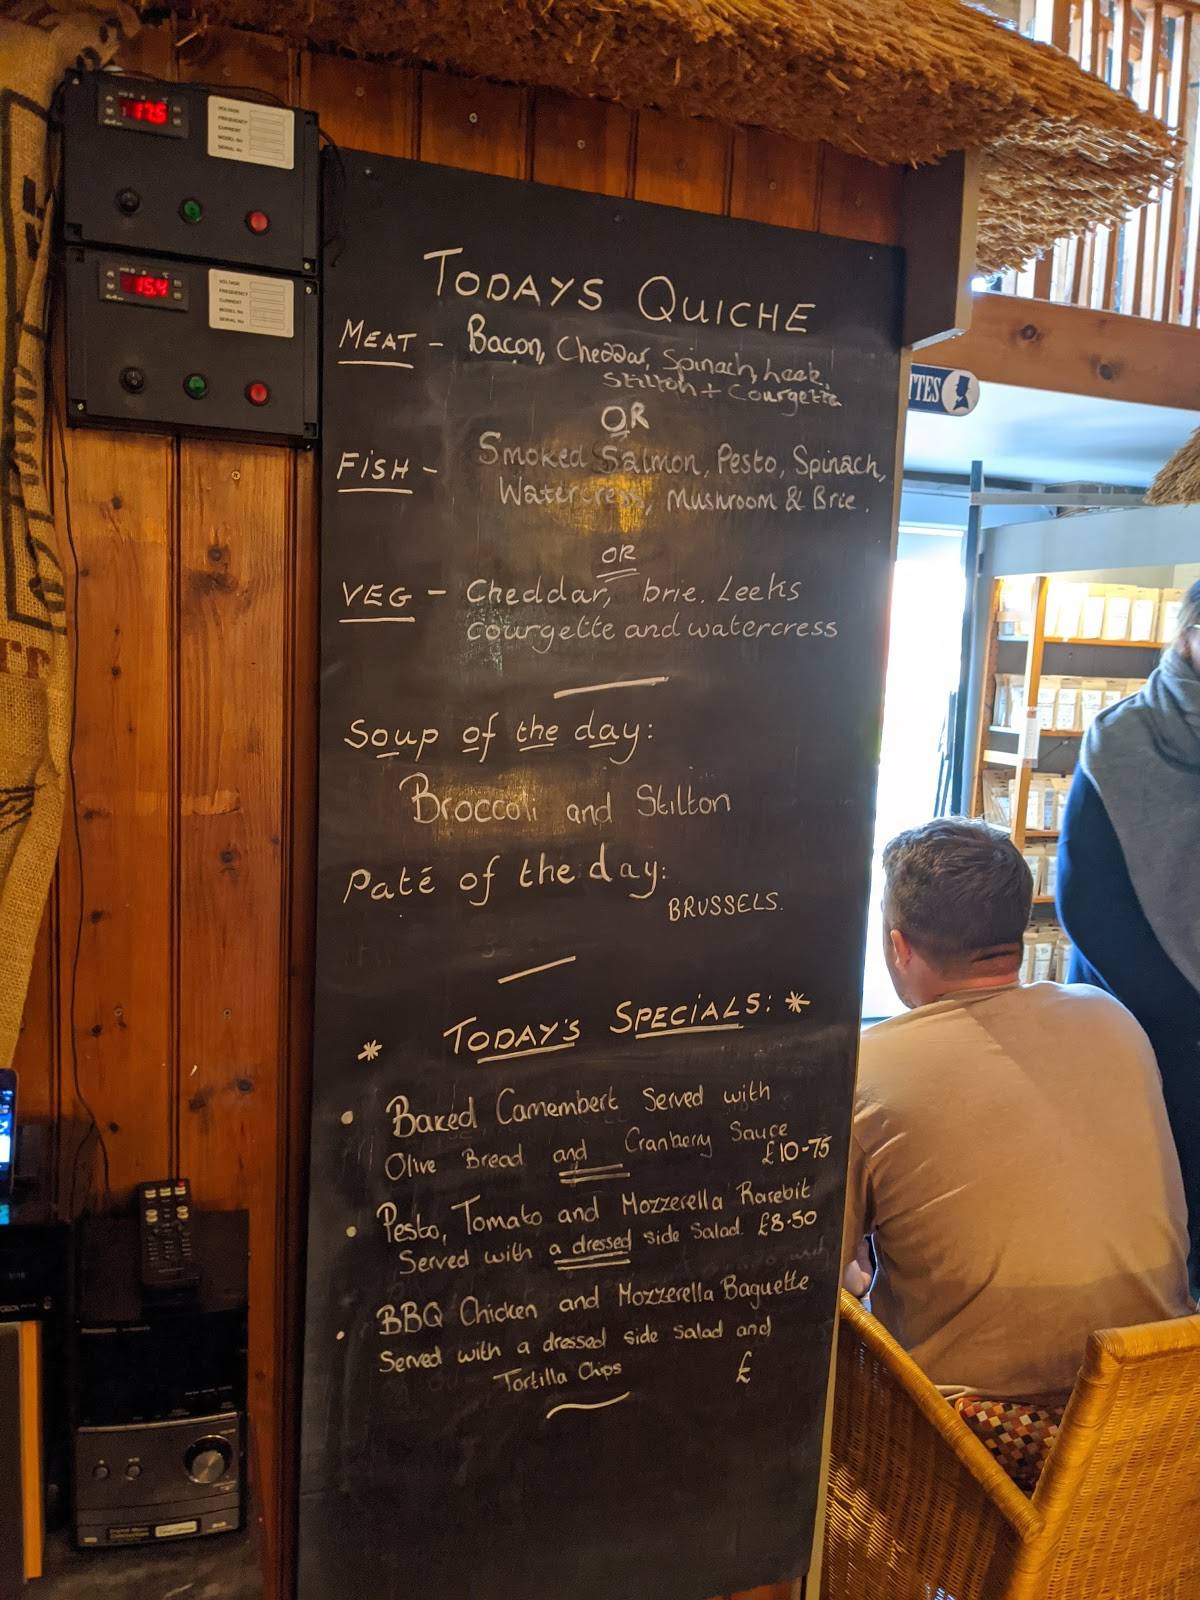 17.5
VOLTAGE
FREQUENCY
CURRENT
MODEL No
SERIAL No
15.4
VOLTAGE
FREQUENCY
CURRENT
MODEL No
SERIAL No
TODAYS QUICHE
MEAT - Bacon, Cheddar, Spinach, Leek,
Stilton + Courgette
OR
FISH - Smoked Salmon, Pesto, Spinach,
Watercress, Mushroom & Brie.
OR
VEG - Cheddar, brie. Leeks
courgette and watercress
Soup of the day:
Broccoli and Stilton
Paté of the day:
BRUSSELS.
* TODAY'S SPECIALS: *
• Baked Camembert Served with
Olive Bread and Cranberry Sauce
£10-75
• Pesto, Tomato and Mozzerella Rarebit
Served with a dressed side Salad. £8.50
• BBQ Chicken and Mozzerella Baguette
Served with a dressed side salad and
Tortilla Chips £
TTES